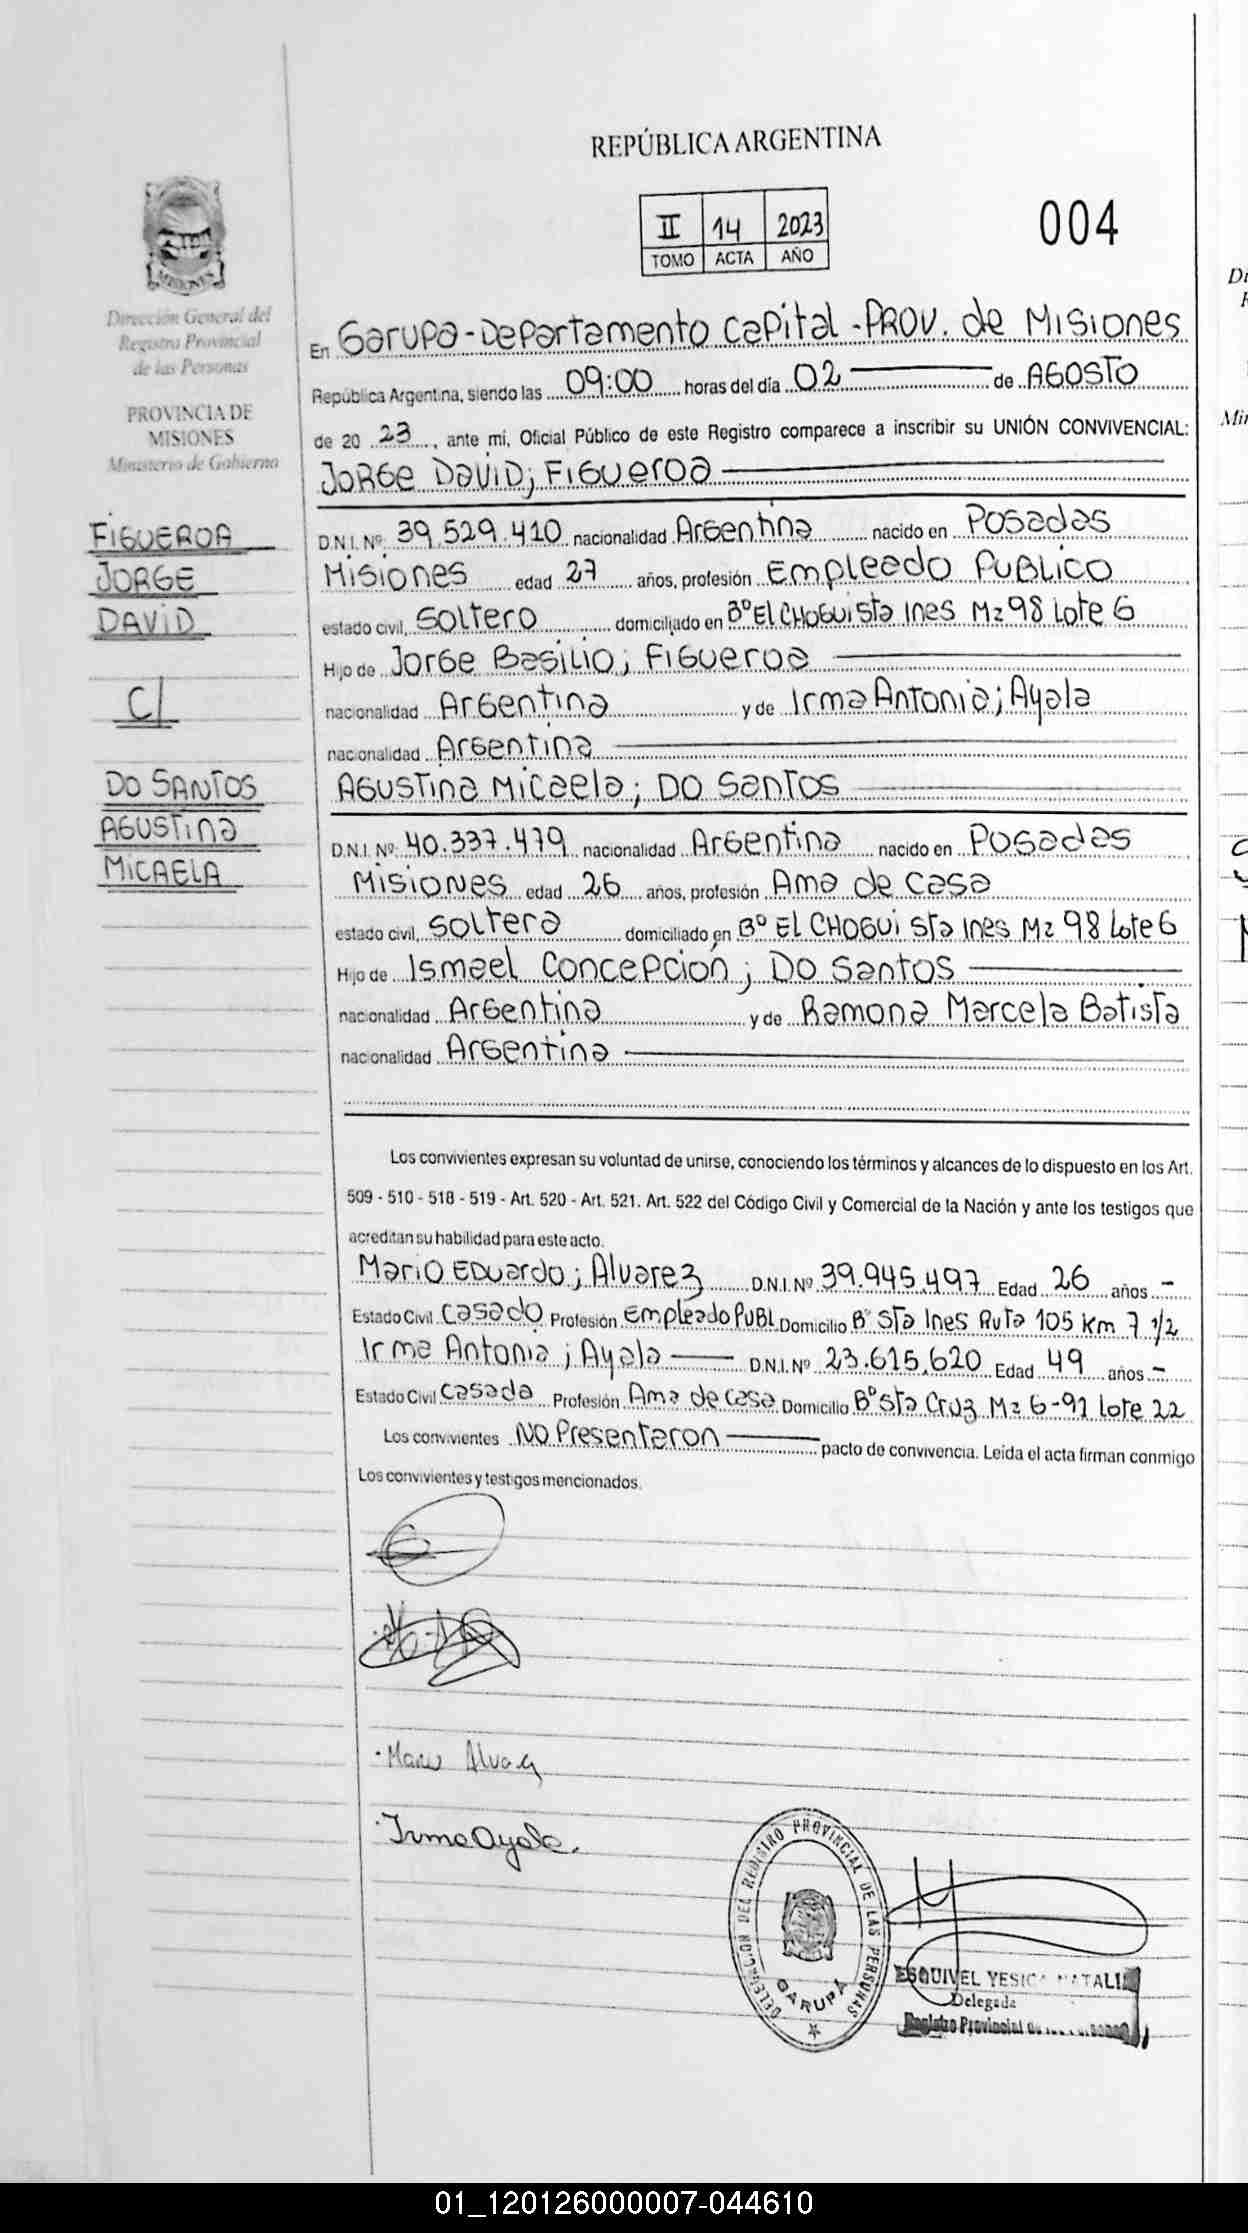 REPÚBLICA ARGENTINA
II 14 2023
TOMO ACTA AÑO
004
Dirección General del
Registro Provincial
de las Personas
PROVINCIA DE
MISIONES
Ministerio de Gobierno
En Garupa - Departamento Capital - PROV. de Misiones
República Argentina, siendo las 09:00 horas del día 02 de AGOSTO
de 20 23, ante mí, Oficial Público de este Registro comparece a inscribir su UNIÓN CONVIVENCIAL:
JORGE DAVID; FIGUEROA
FIGUEROA
JORGE
DAVID
C/
DO SANTOS
AGUSTINA
MICAELA
D.N.I. Nº 39.529.410 nacionalidad Argentina nacido en Posadas
Misiones edad 27 años, profesión Empleado Publico
estado civil, Soltero domiciliado en Bº El CHOGUI Sta Ines Mz 98 Lote 6
Hijo de Jorge Basilio; Figueroa
nacionalidad Argentina y de Irma Antonia; Ayala
nacionalidad Argentina
Agustina Micaela; Do Santos
D.N.I. Nº 40.337.479 nacionalidad Argentina nacido en Posadas
Misiones edad 26 años, profesión Ama de casa
estado civil, Soltera domiciliado en Bº El CHOGUI Sta Ines Mz 98 Lote 6
Hijo de Ismael Concepción; Do Santos
nacionalidad Argentina y de Ramona Marcela Batista
nacionalidad Argentina
Los convivientes expresan su voluntad de unirse, conociendo los términos y alcances de lo dispuesto en los Art.
509 - 510 - 518 - 519 - Art. 520 - Art. 521. Art. 522 del Código Civil y Comercial de la Nación y ante los testigos que
acreditan su habilidad para este acto.
Mario Eduardo; Alvarez D.N.I. Nº 39.945.497 Edad 26 años -
Estado Civil Casado Profesión Empleado Publ Domicilio Bº Sta Ines Ruta 105 Km 7 1/2
Irma Antonia; Ayala D.N.I. Nº 23.615.620 Edad 49 años -
Estado Civil Casada Profesión Ama de casa Domicilio Bº Sta Cruz Mz 6-91 Lote 22
Los convivientes NO Presentaron pacto de convivencia. Leída el acta firman conmigo
Los convivientes y testigos mencionados.
Irma Ayala.
DELEGACION DEL REGISTRO PROVINCIAL DE LAS PERSONAS
GARUPA
ESQUIVEL YESICA NATALIA
Delegada
Registro Provincial de las Personas
01_120126000007-044610